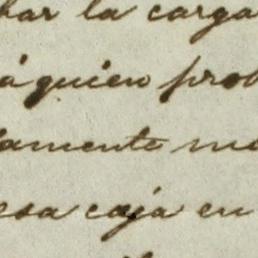 bar la carga
á quien prob
iamente ma
esa caja en